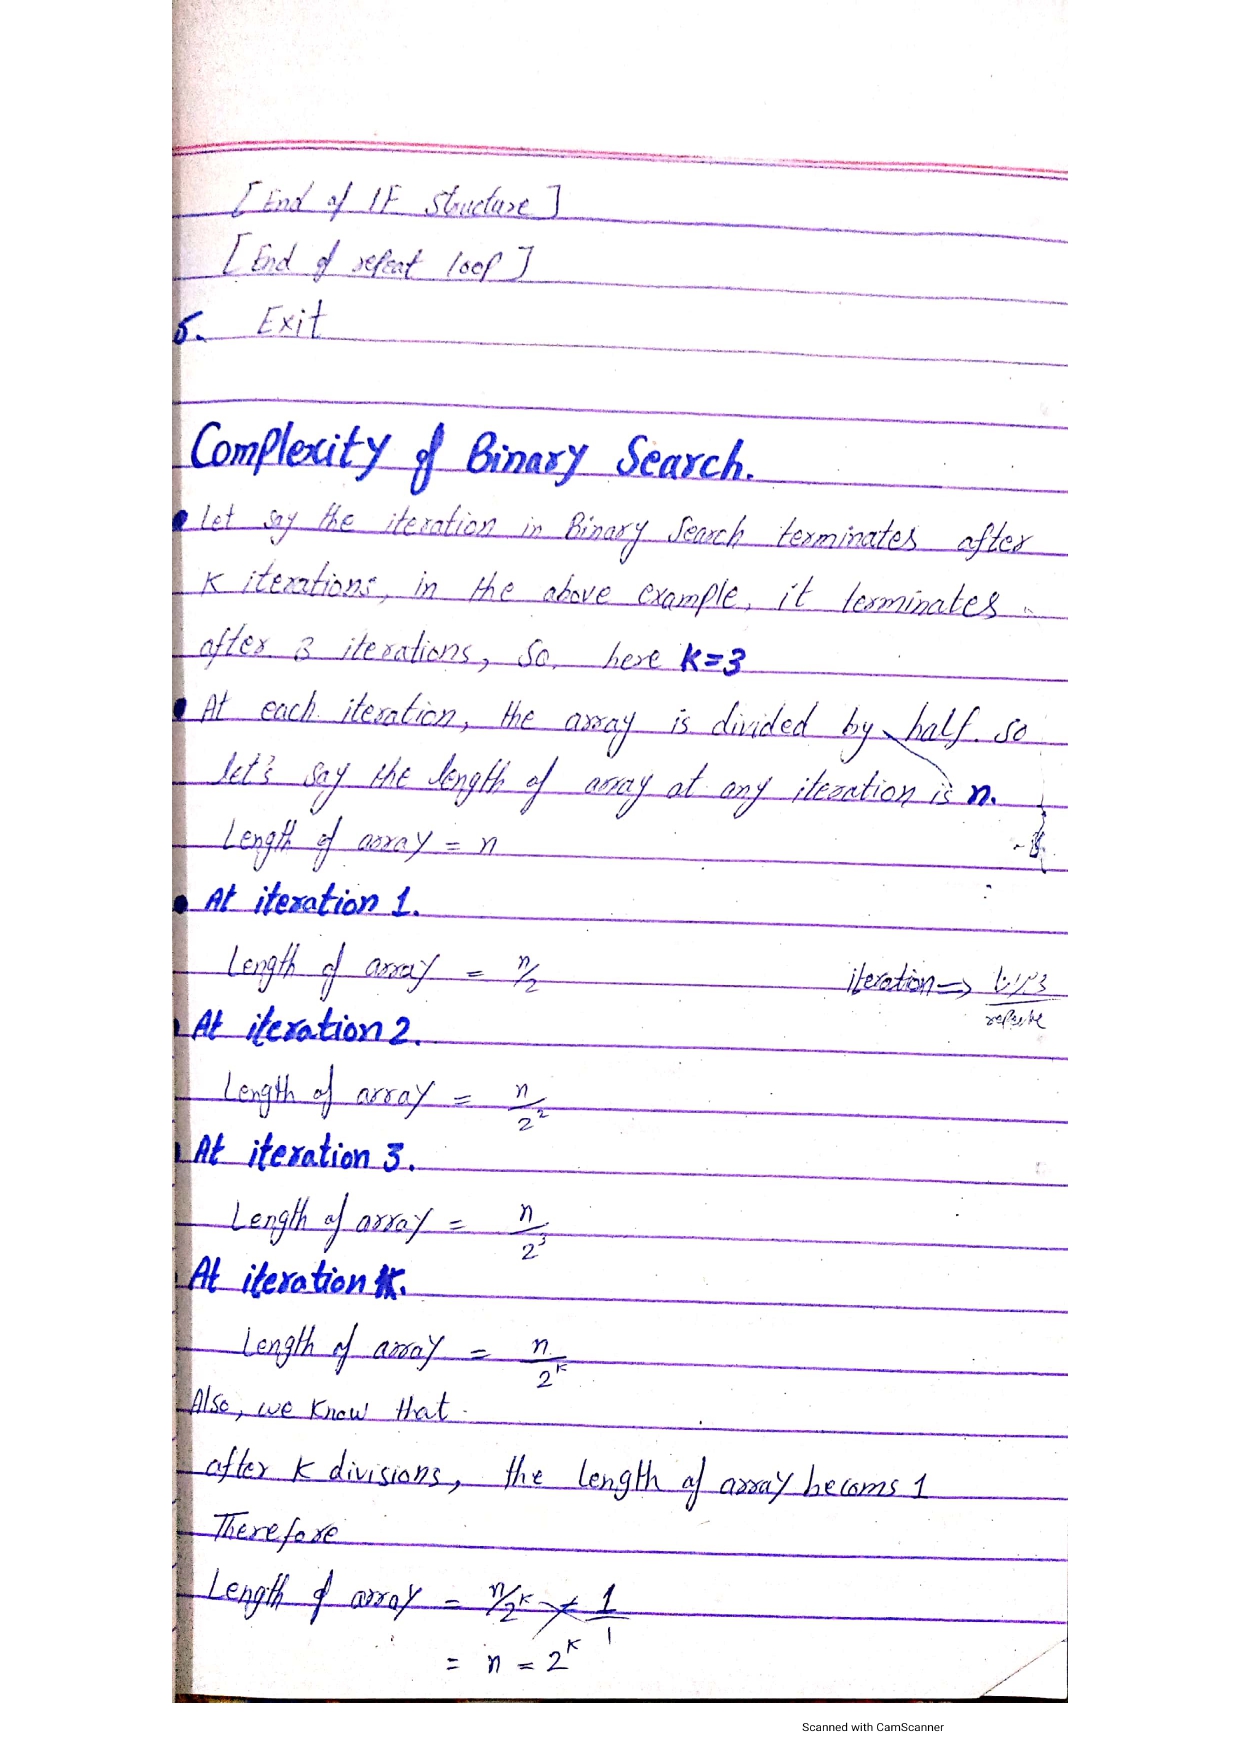 [End of IF structure]
[End of repeat loop]
5. Exit
Complexity of Binary Search.
• Let say the iteration in Binary Search terminates after
K iterations, in the above example, it terminates
after 3 iterations, so. here K=3
• At each iteration, the array is divided by half. so
let's say the length of array at any iteration is n.
Length of array = n
• At iteration 1.
Length of array = n/2
iteration =>
At iteration 2.
Length of array = n/2²
At iteration 3.
Length of array = n/2³
At iteration K.
Length of array = n/2^K
Also, we know that
after K divisions, the length of array becoms 1
Therefore
Length of array = n/2^K = 1/1
= n = 2^K
Scanned with CamScanner